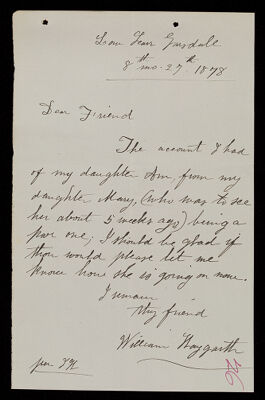 Low Scar Garsdale
8th mo. 27th 1878
Dear Friend
The account I had
of my daughter Ann, from my
daughter Mary, (who was to see
her about 5 weeks ago) being a
poor one; I should be glad if
thou would please let me
know how she is going on now.
I remain
thy friend
William Haygarth
per